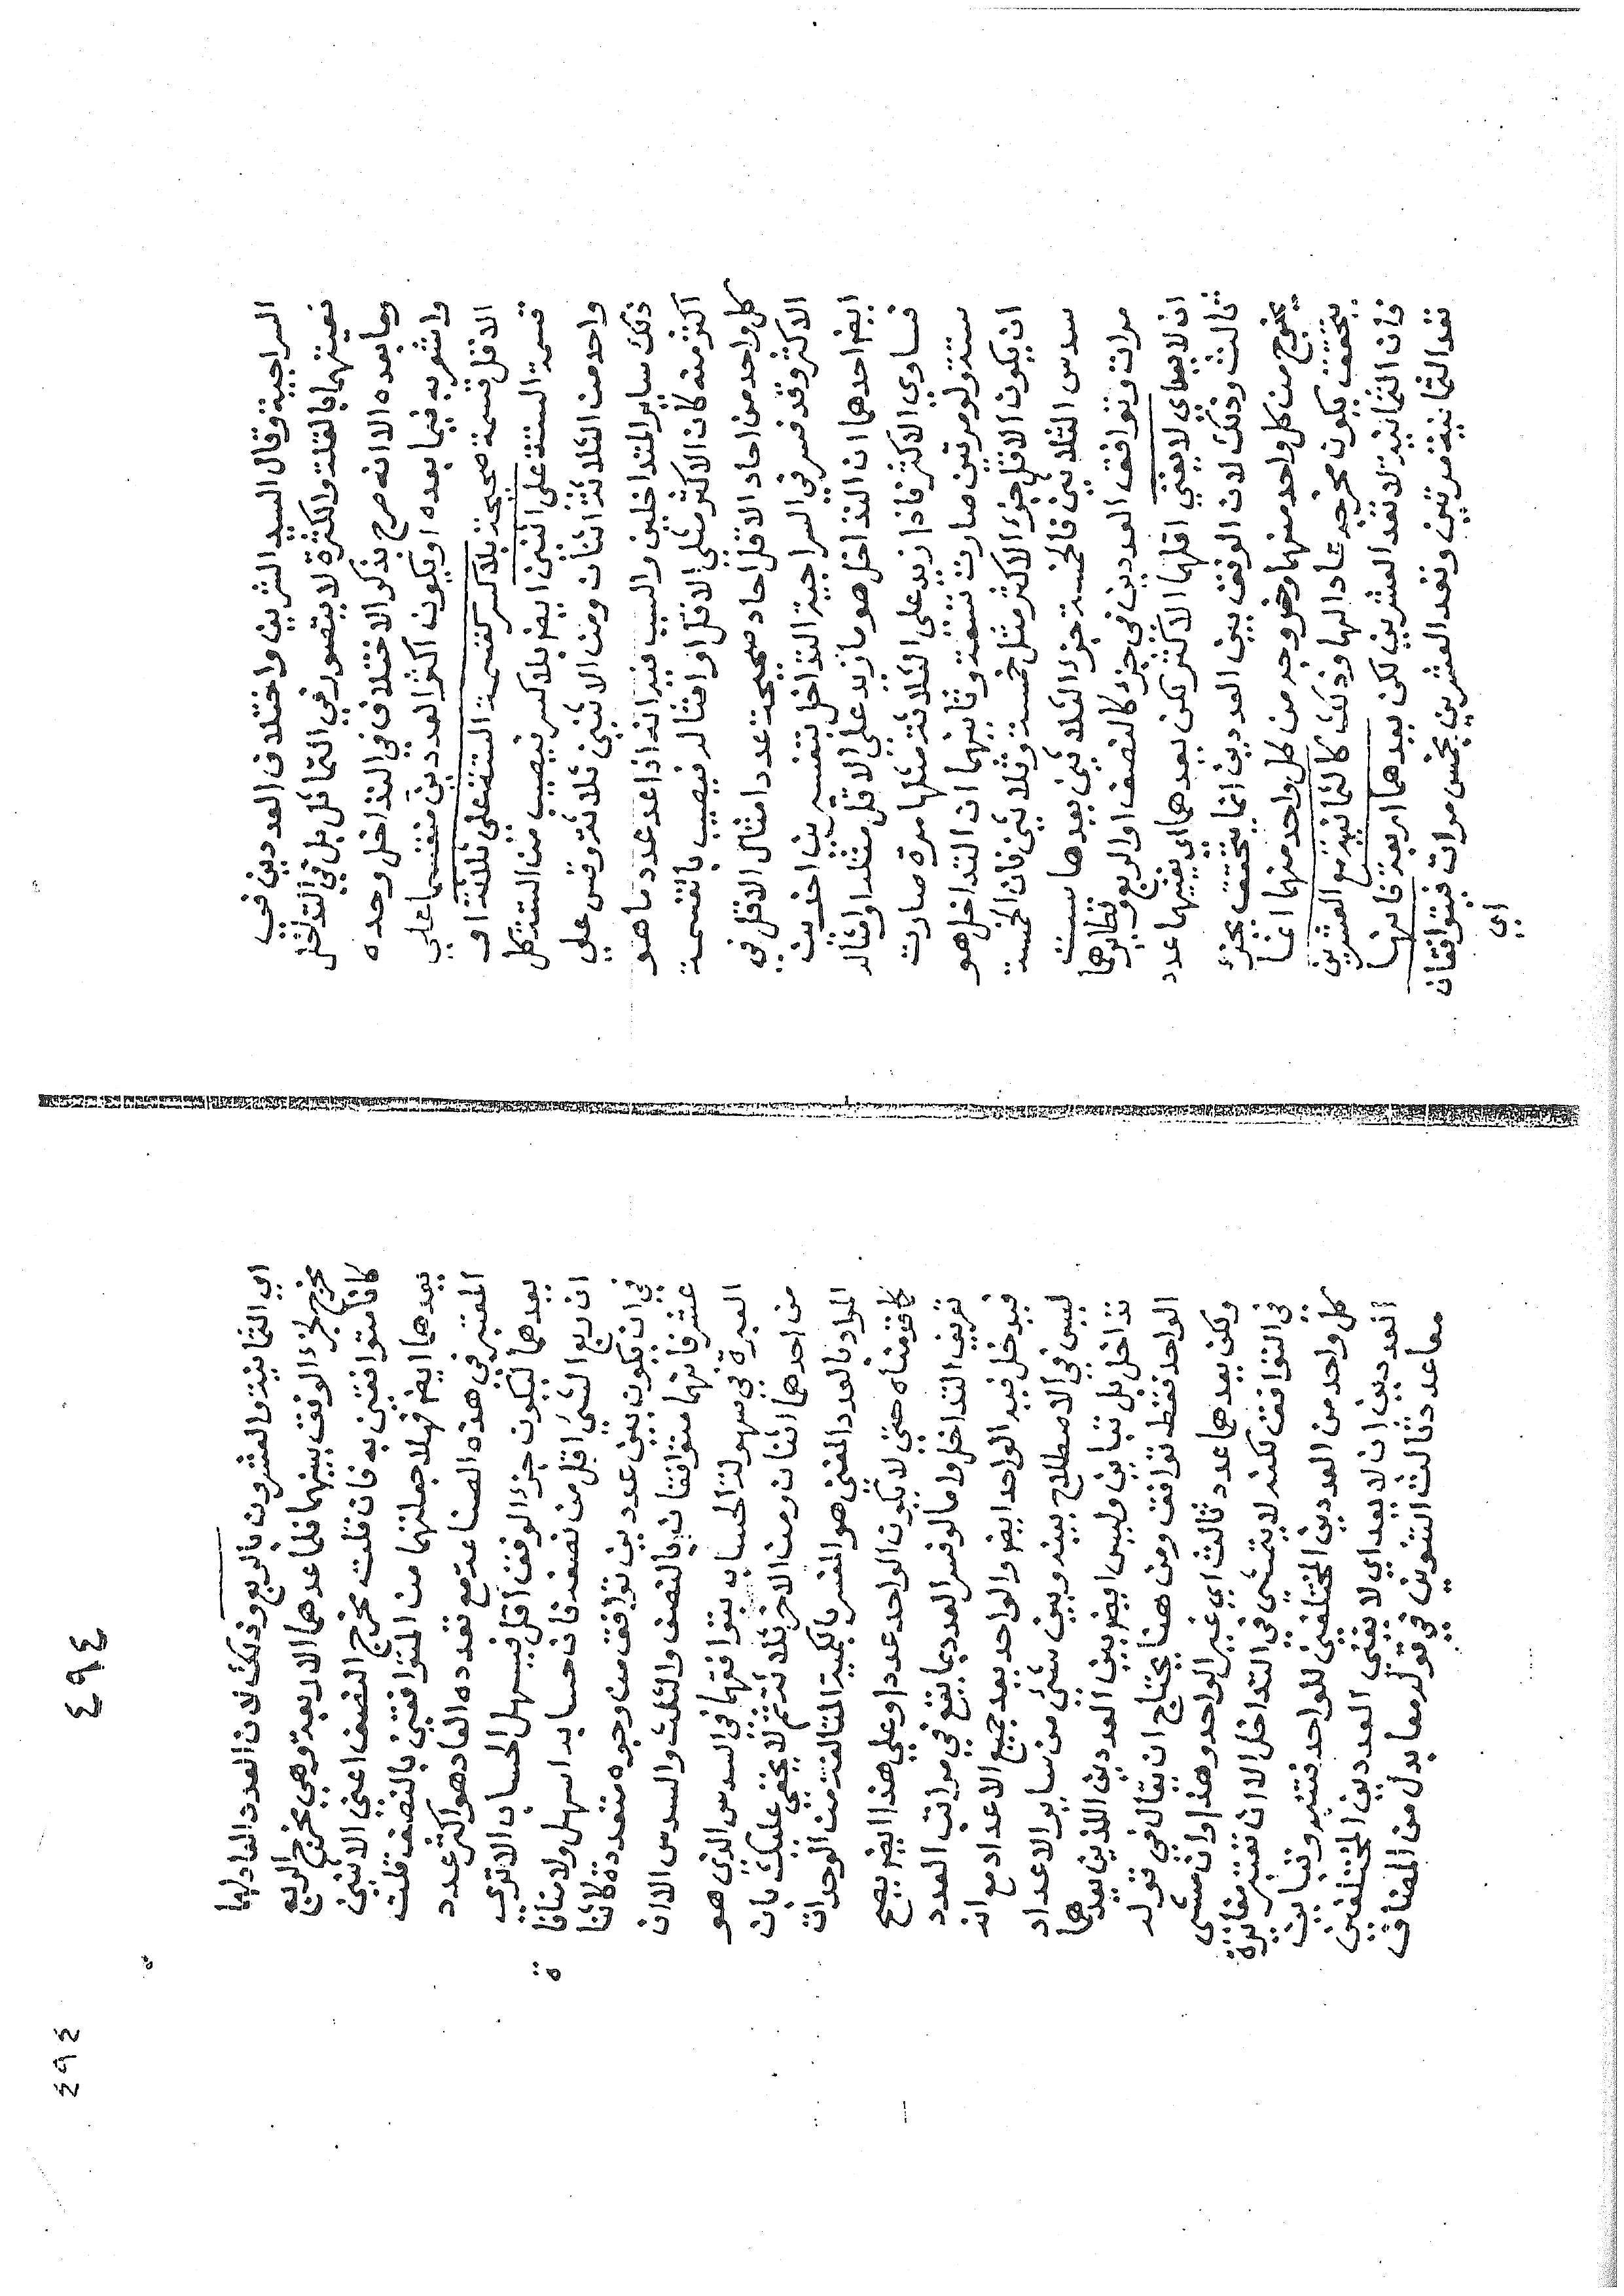 السراجية وقال السيد الشريف واختلاف العددين في
نفسيتهما بالقلة والكثرة لا يتصور في التماثل بل في التداخل
وما بعده الا انه صرح بذكر الاختلاف في التداخل وحده
واشعر به فيما بعده او يكون اكثر العددين منقسما على
الاقل قسمة صحيحة بلا كسر كقسمة الستة على ثلثة او
قسمة الستة على اثنين ايضا بلا كسر فيصيب من الستة كل
واحد من الثلاثة اثنان ومن الاثنين ثلاثة وقس على
ذلك سائر المتداخلين والسبب فيه انه اذا عد عدد ما هو
اكثر منه كان الاكثر مثلي الاقل او امثاله فيصيب بالقسمة
كل واحد من احاد الاقل احاد صحيحة عدد امثال الاقل في
الاكثر وقد فسر في السراجية التداخل بتفسيرين اخرين
ايض احدهما ان التداخل هو ما زيد على الاقل مثله او امثاله
فساوي الاكثر فاذا زيد على الثلاثة مثلها مرة صارت
ستة ولو مرتين صارت تسعة وثانيهما ان التداخل هو
ان يكون الاقل جزء الاكثر مثل خمسة وثلاثين فان الخمسة
سدس الثلاثين فالخمسة جزء الثلاثين بعدها ست
مرات وتوافق العددين في جزء كالنصف او الربع ونظائرهما
ان لا يعد اي لا يفني اقلهما الاكثر لكن يعدهما اي يفنيهما عدد
ثالث وذلك لان الوفق بين العددين انما يتحقق بجزء
يخرج من كل واحد منهما وخروجه من كل واحد منهما انما
يتحقق بكون مخرجه عاد الهما وذلك كالثمانية مع العشرين
فان الثمانية لا تعد العشرين لكن يعدهما اربعة فانها
تعد الثمانية مرتين وتعد العشرين بخمس مرات فيتوافقان
اي
٤٩٤
اي الثمانية والعشرون بالربع وذلك لان العدد العاد لهما
مخرج لجزء الوفق بينهما فلما عدهما الاربعة وهي مخرج الربع
كانا متوافقين به فان قلت مخرج النصف اعني الاثنين
يعدهما ايض فهلا جعلتهما من المتوافقين بالنصف قلت
المعتبر في هذه الصناعة مع تعدده العاد هو اكثر عدد
يعدهما ليكون جزء الوفق اقل فيسهل الحساب الا ترى
ان ربع الشئ اقل من نصفه فان حسابه اسهل ولا منافاة
في ان يكون بين عددين توافق من وجوه متعددة كاثنا
عشر فانهما متوافقان بالنصف والثلث والسدس الا ان
العبرة في سهولة الحساب بتوافقهما في السدس الذي هو
من احدهما اثنان ومن الاخر ثلاثة ثم لا يخفى عليك بان
المراد بالعدد المفنى هو المفسر بالكمية المتالفة من الوحدات
كما قدمناه حتى لا يكون الواحد عددا وعلى هذا ايض يصح
تعريف التداخل واما لو فسر العدد بما يقع في مراتب العدد
فيدخل فيه الواحد ايض والواحد يعد جميع الاعداد مع انه
ليس في الاصطلاح بينه وبين شئ من سائر الاعداد
تداخل بل تباين وليس ايض بين العددين اللذين يعدهما
الواحد فقط توافق ومن هنا يحتاج ان يقال في قوله
ولكن يعدهما عدد ثالث اي غير الواحد وهذا وان مشى
في التوافق لكنه لا يتمشى في التداخل الا ان تعتبر مغايرة
كل واحد من العددين المختلفين للواحد فتدبر وتباين
العددين ان لا يعد اي لا يفني العددين المختلفين
معا عدد ثالث التنوين في قوله معا بدل من المضاف
٤٩٤